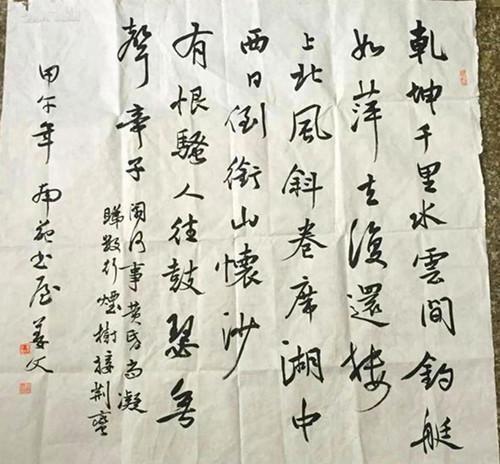 乾坤千里水雲間釣艇
如萍去復還樓
上北風斜卷席湖中
西日倒銜山懷沙
有恨騷人往鼓瑟無
聲帝子
閑何事黃昏尚凝
睇數行煙樹接荊蠻
甲午年 南苑书屋